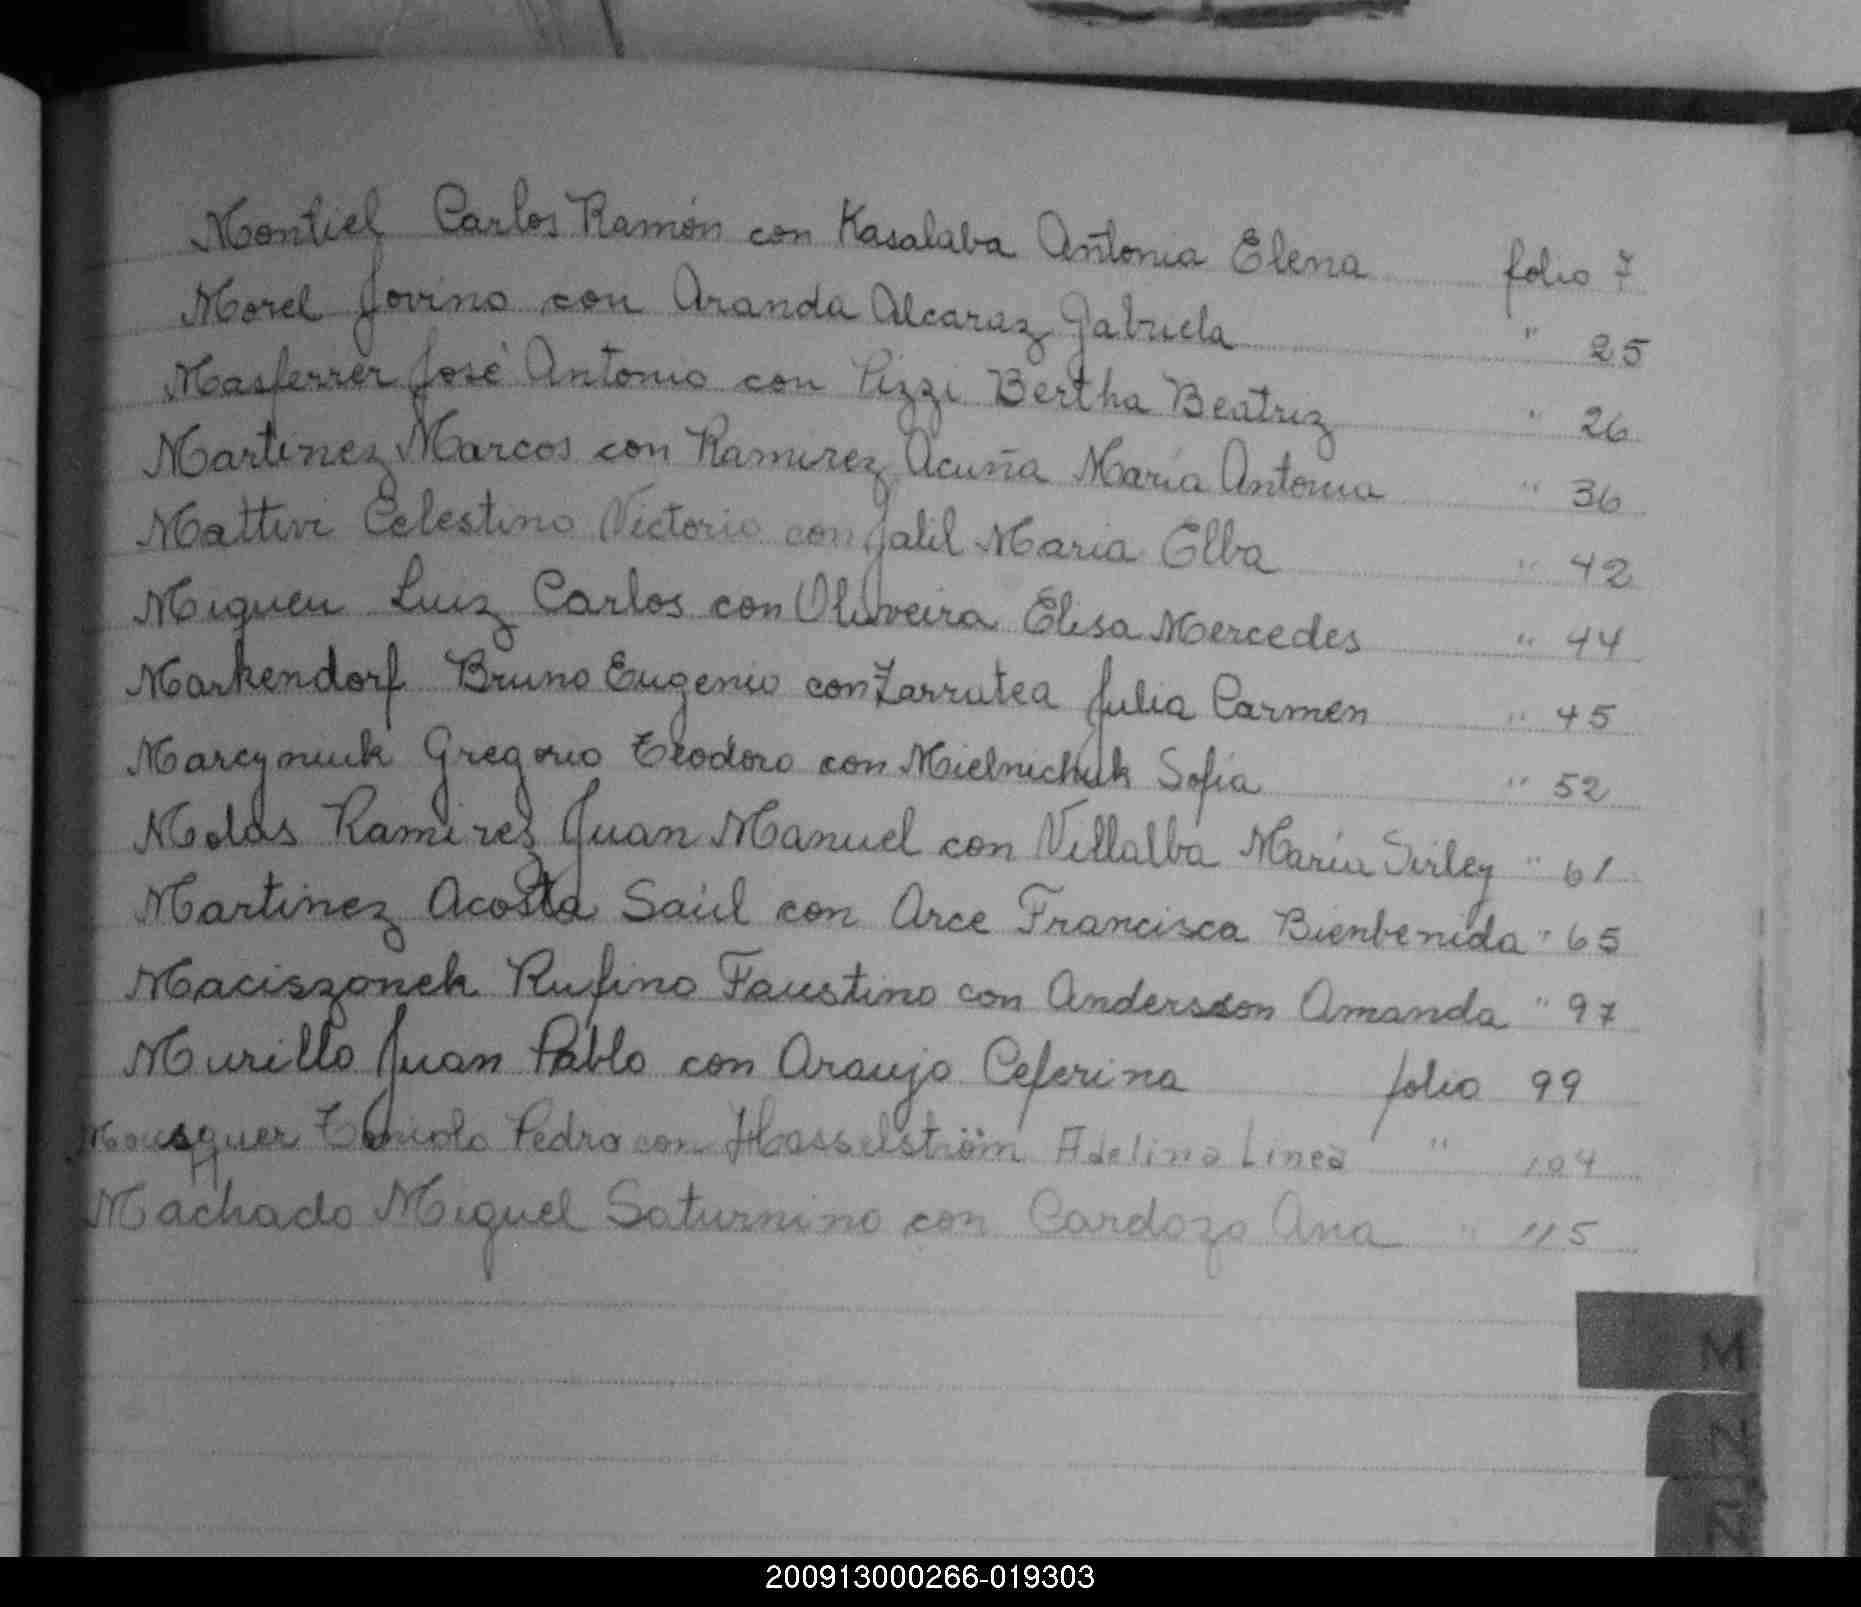 Montiel Carlos Ramón con Kasalaba Antonia Elena folio 7
Morel Jovino con Aranda Alcaraz Gabriela " 25
Masferrer José Antonio con Pizzi Bertha Beatriz " 26
Martinez Marcos con Ramirez Acuña María Antonia " 36
Mattivi Celestino Victorio con Jalil Maria Elba " 42
Migueu Luiz Carlos con Oliveira Elisa Mercedes " 44
Markendorf Bruno Eugenio con Zarratea Julia Carmen " 45
Marcyniuk Gregorio Teodoro con Mielnichuk Sofía " 52
Molas Ramirez Juan Manuel con Villalba María Sirley " 61
Martinez Acosta Saúl con Arce Francisca Bienbenida " 65
Maciszonek Rufino Faustino con Andersson Amanda " 97
Murillo Juan Pablo con Araujo Ceferina folio 99
Pedro con Hasselström Adelina Linea " 104
Machado Miguel Saturnino con Cardozo Ana " 115
M
N
Ñ
200913000266-019303